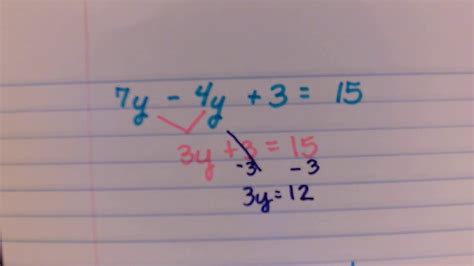 7y - 4y + 3 = 15
3y + 3 = 15
-3 -3
3y = 12